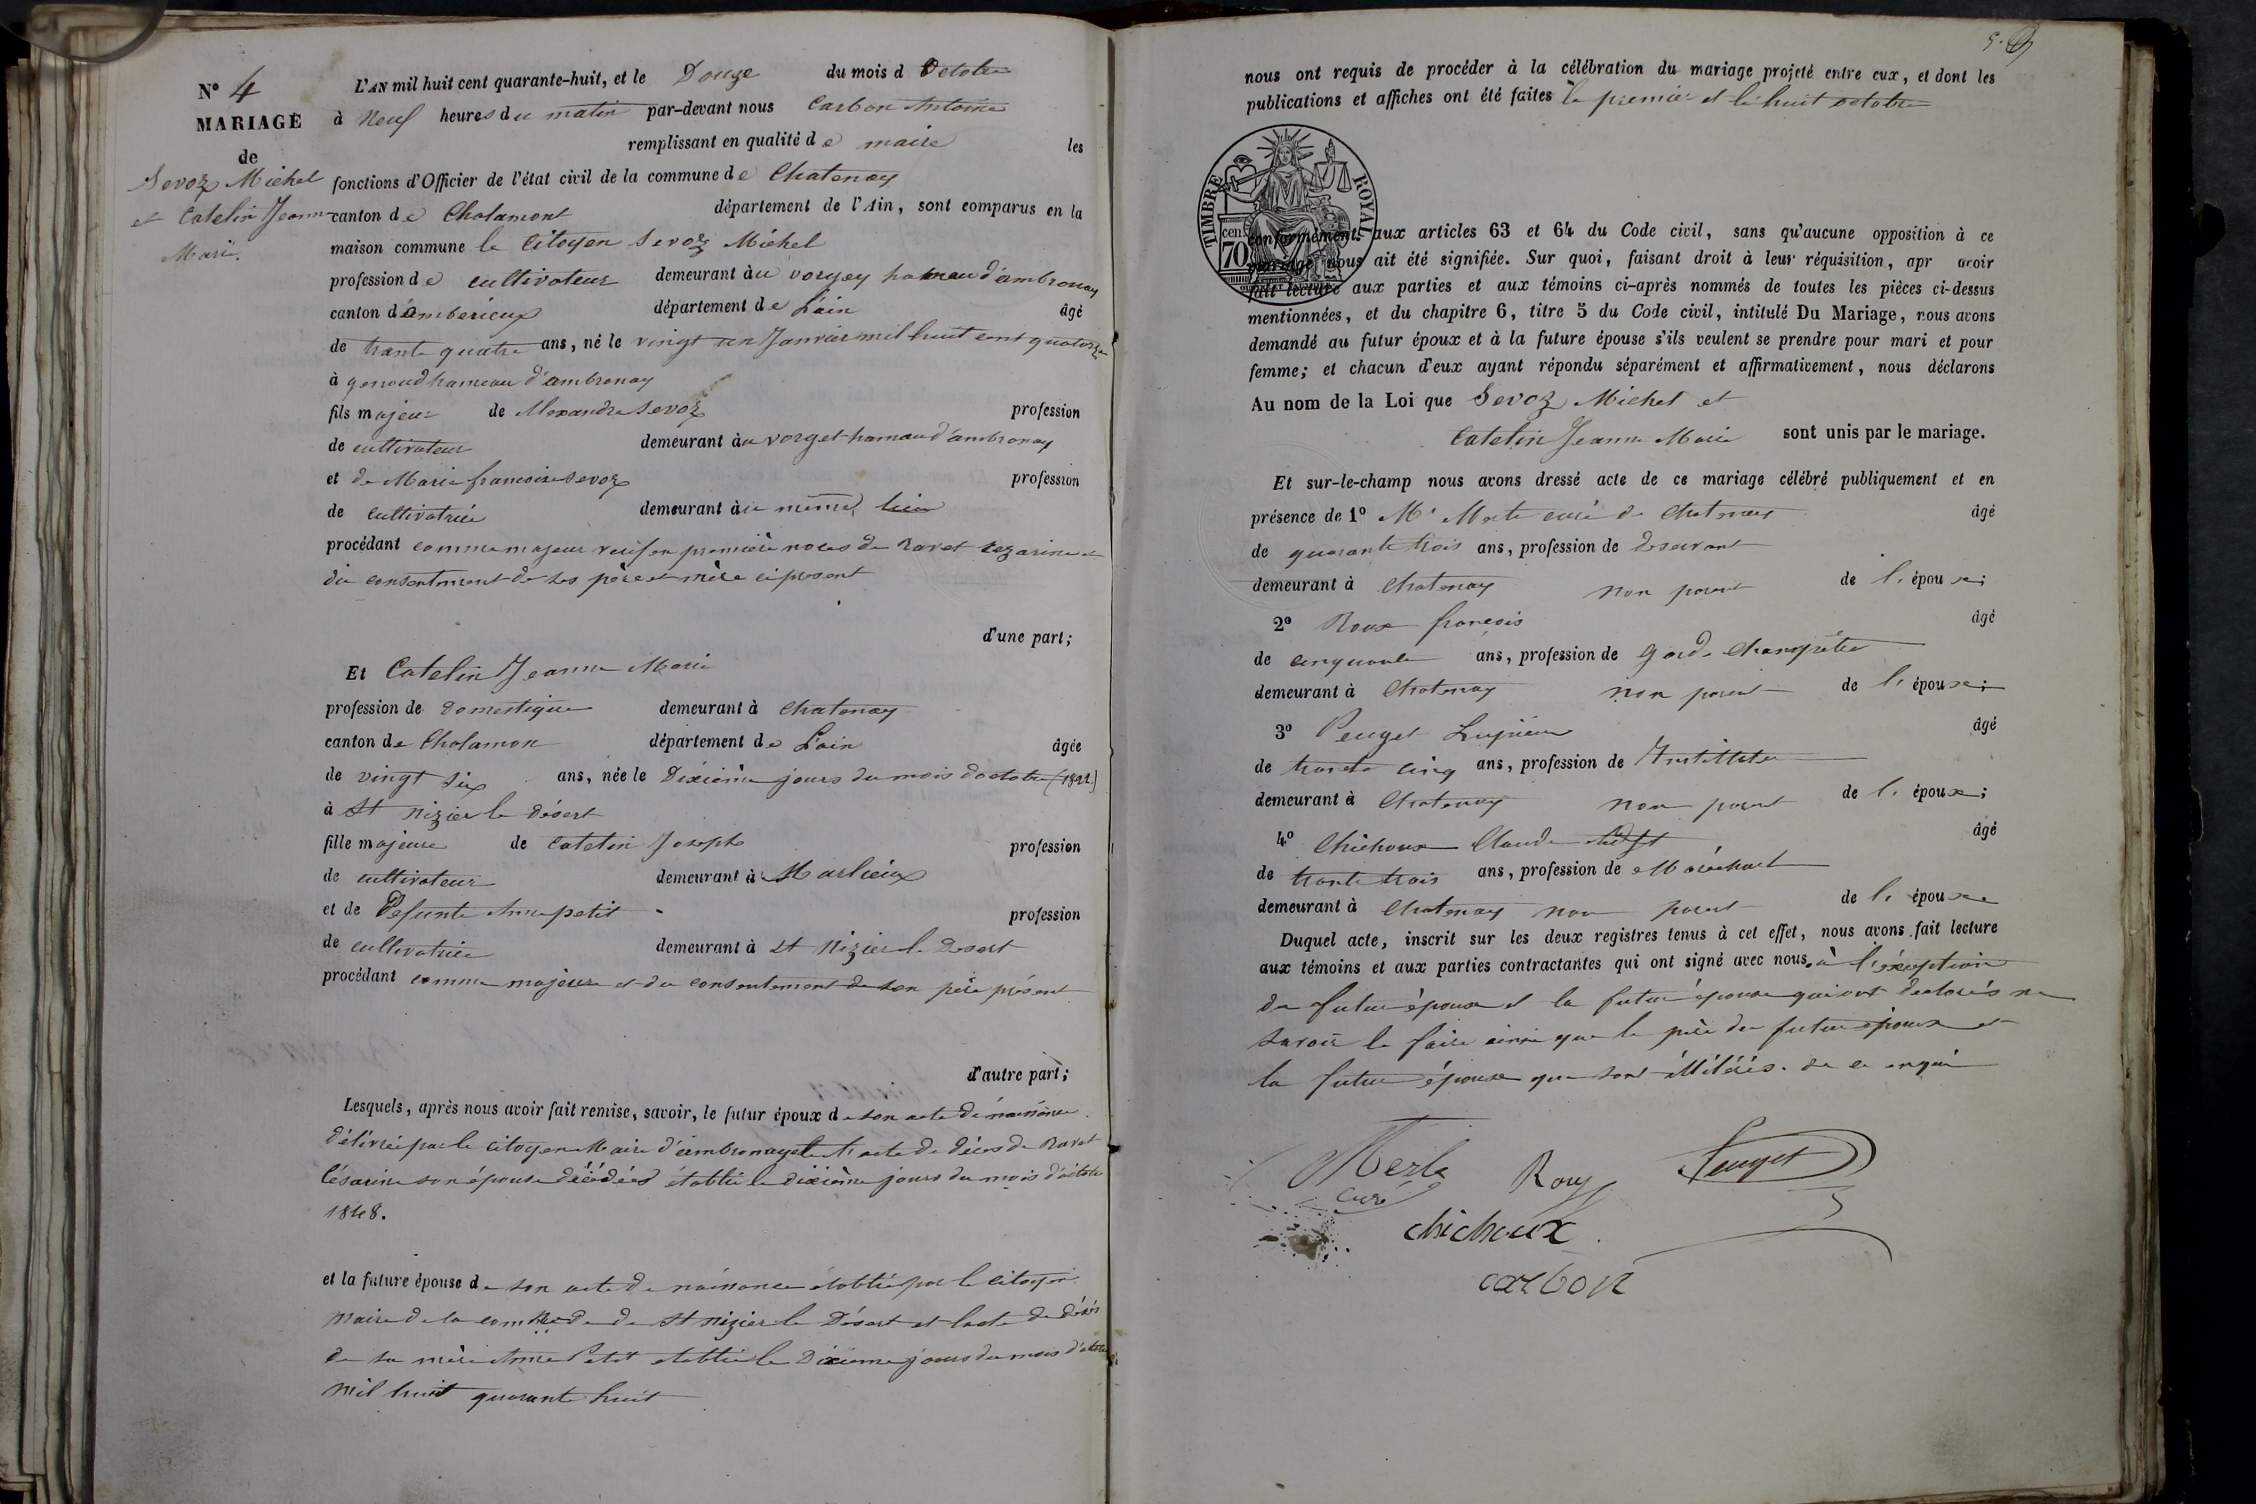 N° 4
MARIAGE
de
Sevoz Michel
et Catelin Jeanne
Marie.
L'AN mil huit cent quarante-huit, et le Douze du mois d Octobre
à Neuf heures du matin par-devant nous Carbon Antoine
remplissant en qualité de maire les
fonctions d'Officier de l'état civil de la commune de Chatenay
canton de Chalamont département de l'Ain, sont comparus en la
maison commune le Citoyen Sevoz Michel
profession de cultivateur demeurant àu vorgey hameau d'ambronay
canton d'ambérieux département de L'ain âgé
de trante quatre ans, né le vingt un Janvier mil huit cent quatorze
à genoud hameau d'ambronay
fils majeur de Alexandre Sevoz profession
de cultivateur demeurant àu vorget hamau d'ambronay
et de Marie francoise Sevoz profession
de cultivatrice demeurant àu même lieu
procédant comme majeur veuf en première noces de Ravet Cezarine et
du consentment de ses père et mère ci present
d'une part;
Et Catelin Jeanne Marie
profession de Domestique demeurant à Chatenay
canton de Chalamon département de L'ain âgée
de vingt six ans, née le Dixième jours du mois d'octobre (1822)
à St Nizier le Désert
fille majeure de Catelin Joseph profession
de cultivateur demeurant à Marlieux
et de Defunte Anne petit profession
de cultivatrice demeurant à St Nizier le Desert
procédant comme majeure et du consentement de son père présent
d'autre part;
Lesquels, après nous avoir fait remise, savoir, le futur époux de son acte de naissance
délivrée par le citoyen Maire d'ambronay et l'acte de décès de Ravet
Césarine son épouse décédée établie le dixième jours du mois d'octobre
1848.
et la future épouse de son acte de naissance établie par le citoyen
Maire de la commune de St Nizier le Désert et lacte de décès
de sa mère Anne Petit etablie le Dixième jours du mois d'octobre
mil huit quarante huit
5.
nous ont requis de procéder à la célébration du mariage projeté entre eux, et dont les
publications et affiches ont été faites le premier et le huit octobre
TIMBRE ROYAL
70 cent.
conformément aux articles 63 et 64 du Code civil, sans qu'aucune opposition à ce
mariage nous ait été signifiée. Sur quoi, faisant droit à leur réquisition, apr avoir
fait lecture aux parties et aux témoins ci-après nommés de toutes les pièces ci-dessus
mentionnées, et du chapitre 6, titre 5 du Code civil, intitulé Du Mariage, nous avons
demandé au futur époux et à la future épouse s'ils veulent se prendre pour mari et pour
femme; et chacun d'eux ayant répondu séparément et affirmativement, nous déclarons
Au nom de la Loi que Sevoz Michel et
Catelin Jeanne Marie sont unis par le mariage.
Et sur-le-champ nous avons dressé acte de ce mariage célébré publiquement et en
présence de 1° Mr Merle curé de Chatenay âgé
de quarante trois ans, profession de Deservant
demeurant à Chatenay non parent de l'épouse;
2° Roux françois âgé
de cinquante ans, profession de Garde Champêtre
demeurant à Chatenay non parent de l'épouse;
3° Peuget âgé
de trante cinq ans, profession de Instituteur
demeurant à Chatenay non parent de l'épouse;
4° Chichoux Claude âgé
de trante trois ans, profession de Maréchal
demeurant à Chatenay non parent de l'épouse
Duquel acte, inscrit sur les deux registres tenus à cet effet, nous avons fait lecture
aux témoins et aux parties contractantes qui ont signé avec nous. à l'éxception
du futur époux et la future épouse qui ont declarés ne
savoir le faire ainsi que le père du futur époux et
la future épouse que sont illitérés. de ce enquis
Merle Roux Peuget
curé
chichoux
carbon